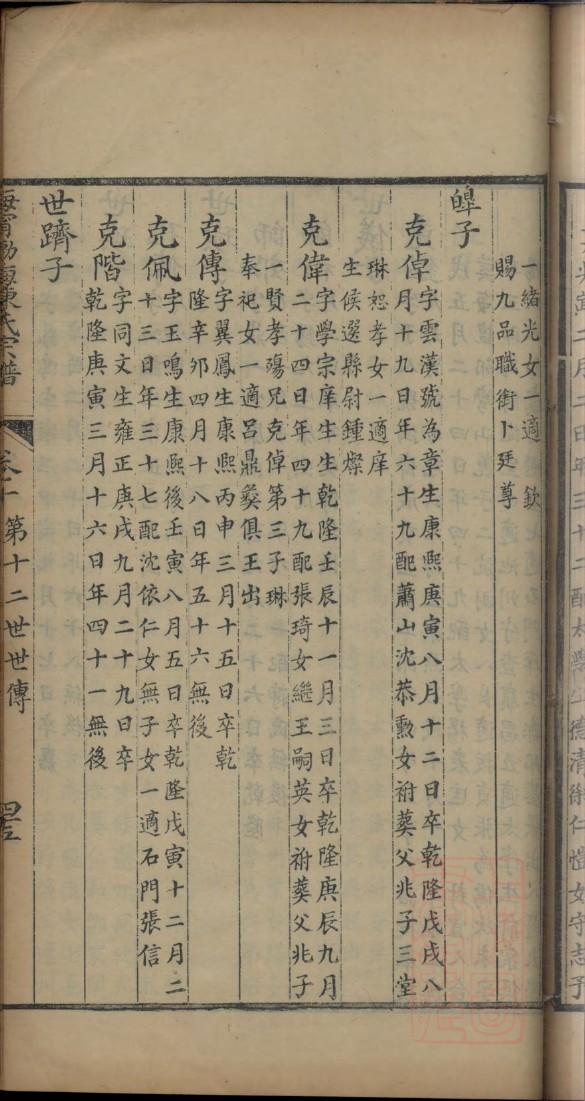 一緒光女一適 欽
賜九品職銜卜廷尊
皥子
克倬
字雲漢號為章生康熙庚寅八月十二日卒乾隆戊戌八
月十九日年六十九配蕭山沈恭勲女祔葬父兆子三堂
琳恕孝女一適庠
生候選縣尉鍾燦
克偉
字學宗庠生生乾隆壬辰十一月三日卒乾隆庚辰九月
二十四日年四十九配張琦女繼王嗣英女祔葬父兆子
一賢孝殤兄克倬第三子琳
奉祀女一適呂鼎彜俱王出
克傳
字翼鳳生康熙丙申三月十五日卒乾
隆辛卯四月十八日年五十六無後
克佩
字玉鳴生康熙後壬寅八月五日卒乾隆戊寅十二月二
十三日年三十七配沈依仁女無子女一適石門張信
克階
字同文生雍正庚戌九月二十九日卒
乾隆庚寅三月十六日年四十一無後
世躋子
海寧渤海陳氏宗譜
第十二世世傳